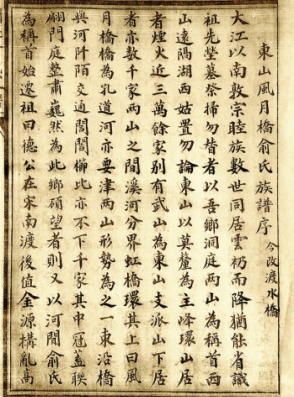 東山風月橋俞氏族譜序 今改渡水橋
大江以南敦宗睦族數世同居雲礽而降猶能省識
祖先塋墓祭掃勿替者以吾鄉洞庭兩山為稱首西
山遠隔湖西姑置勿論東山以莫釐為主峰環山居
者煙火近三萬餘家别有武山為東山支派山下居
者亦數千家兩山之間溪河分界虹橋環其上曰風
月橋橋為孔道河亦要津兩山形勢為之一束沿橋
與河阡陌交通閭閻櫛比亦不下千家其中冠蓋聯
翩門庭整肅巍然為此鄉碩望者則又以河間俞氏
為稱首始遷祖曰德公在宋南渡後值金源構亂髙